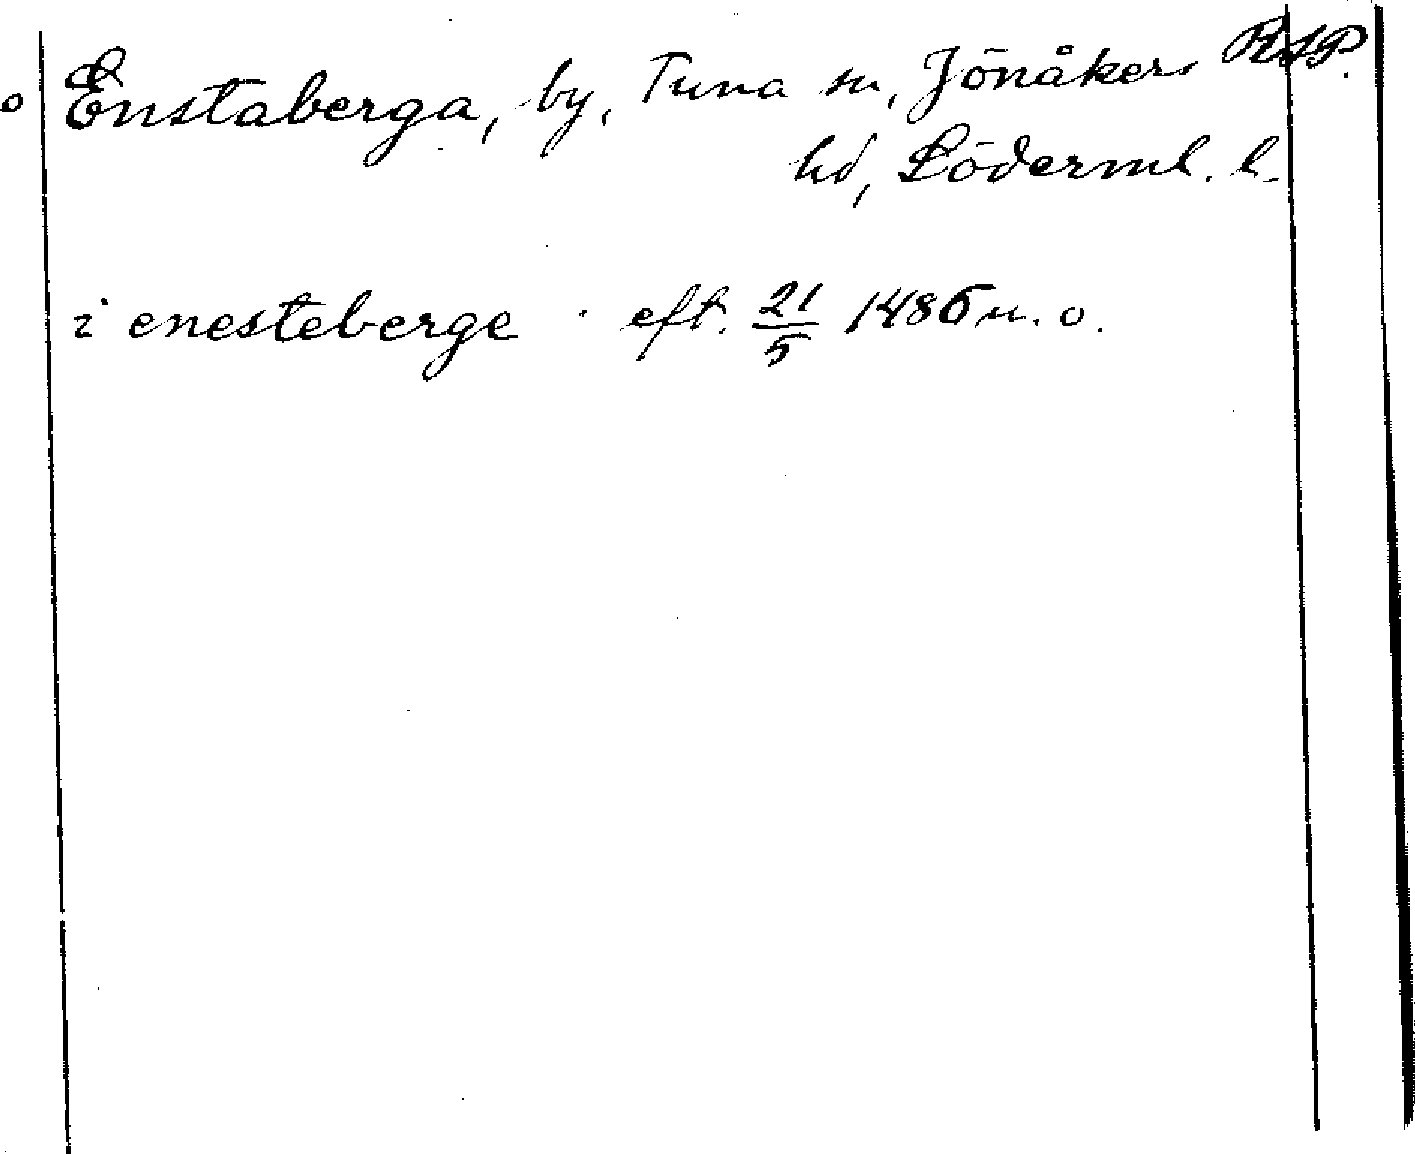 o Enstaberga, by, Tuna sn, Jönåkers RAP.
hd, Söderml. l.
i enesteberge eft. 21/5 1486 u. o.